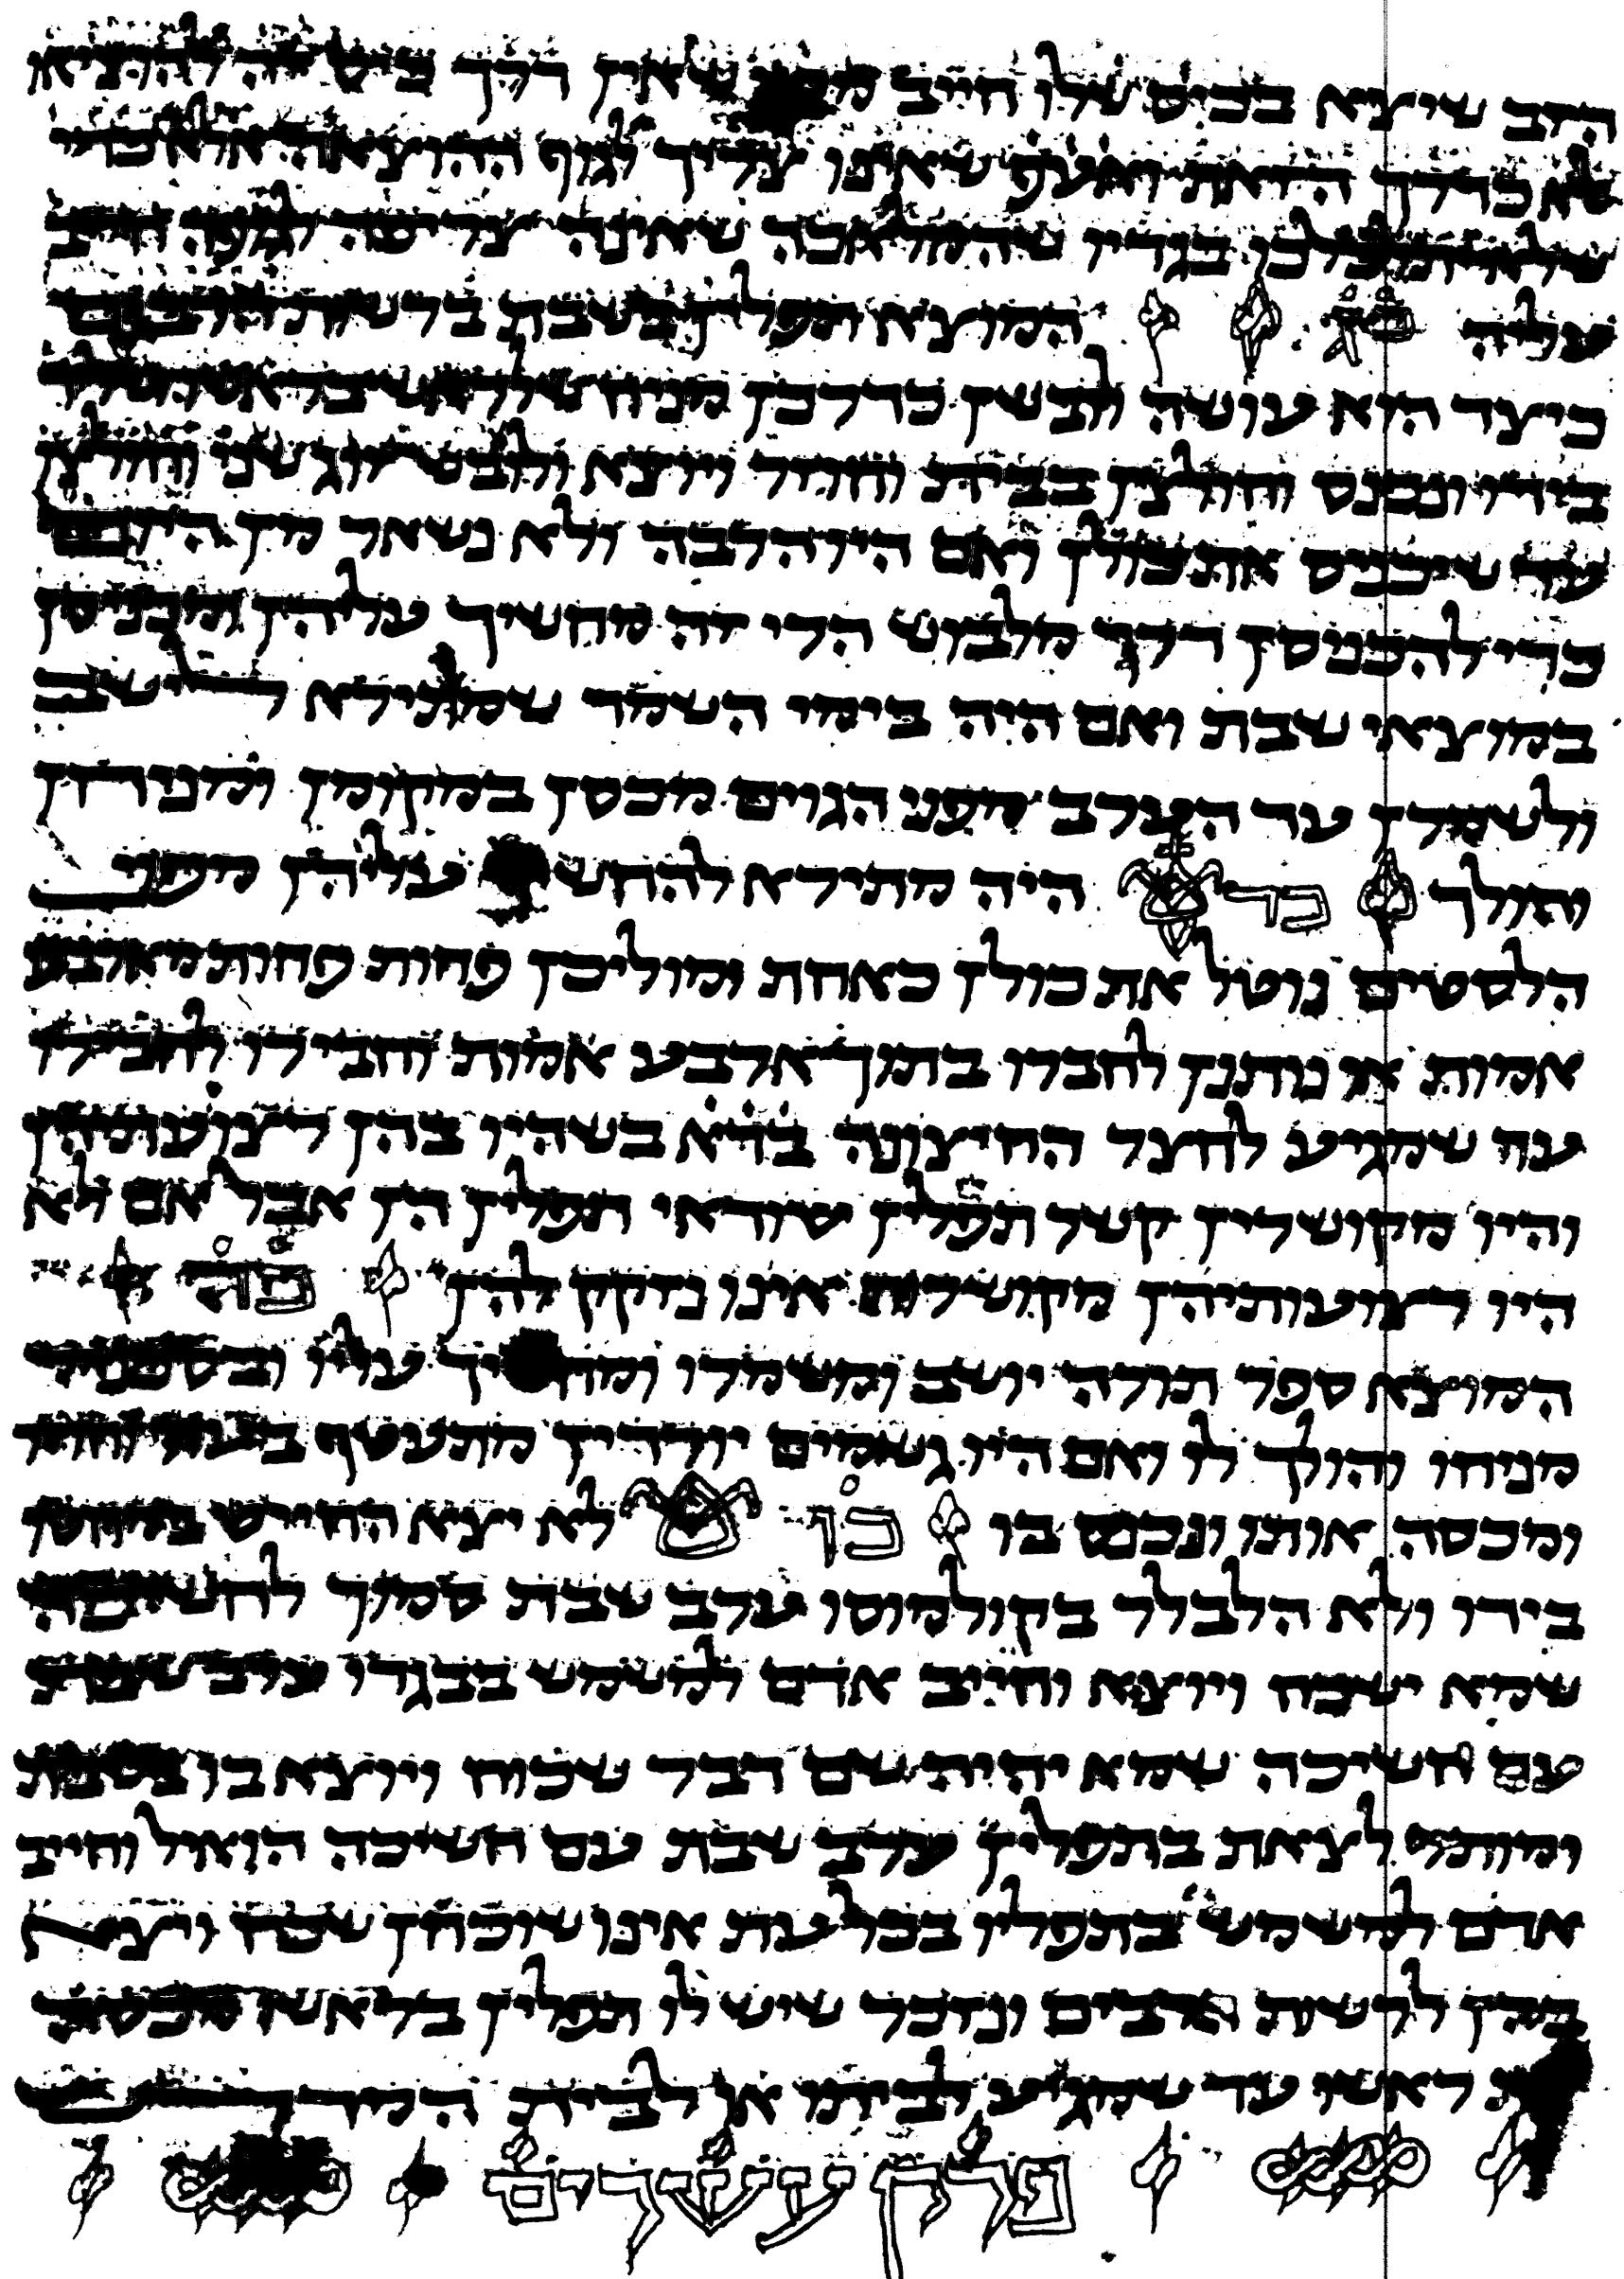 הזב שיצא בכיס שלו חייב מפני שאין דרך כיס זה להוציאו
אלא כדרך הזאת ואעפ שאינו צריך לגוף ההוצאה אלא כדי
שלא יתלכלכו בגדיו שהמלאכה שאינה צריכה לגופה חייב
עליה כג המוצא תפלין בשבת ברשות הרבים
כיצד הוא עושה לובשן כדרכן מניח שלראש בראשו ושליד
בידו ונכנס וחולצן בבית וחוזר ויוצא ולובש זוג שני וחולצן
עד שיכניס את כולן ואם היו הרבה ולא נשאר מן היום
כדי להכניסן דרך מלבוש הרי זה מחשיך עליהן ומכניסן
במוצאי שבת ואם היה בימי השמד שמתירא לישב
ולשמרן עד הערב מפני הגוים מכסן במקומן ומניחן
והולך כד היה מתירא להחשיך עליהן מפני
הלסטים נוטל את כולן כאחת ומוליכן פחות פחות מארבע
אמות או נותנן לחברו בתוך ארבע אמות וחבירו לחבירו
עד שמגיע לחצר החיצונה בדא בשהיו בהן רצועותיהן
והיו מקושרין קשר תפלין שודאי תפלין הן אבל אם לא
היו רצועותיהן מקושרות אינו נזקק להן כה
המוצא ספר תורה יושב ומשמרו ומחשיך עליו ובסכנה
מניחו והולך לו ואם היו גשמים יורדין מתעטף בעור וחוזר
ומכסה אותו ונכנס בו כו לא יצא החייט במחטו
בידו ולא הלבלר בקולמוסו ערב שבת סמוך לחשיכה
שמא ישכח ויוצא וחייב אדם למשמש בבגדו ערב שבת
עם חשיכה שמא יהיה שם דבר שכוח ויוצא בו בשבת
ומותר לצאת בתפלין ערב שבת עם חשיכה הואיל וחייב
אדם למשמש בתפליו בכל עת אינו שוכחן שכח ויצא
בהן לרשות הרבים ונזכר שיש לו תפלין בראשו מכסה
את ראשו עד שמגיע לביתו או לבית המדרש
פרק עשרים